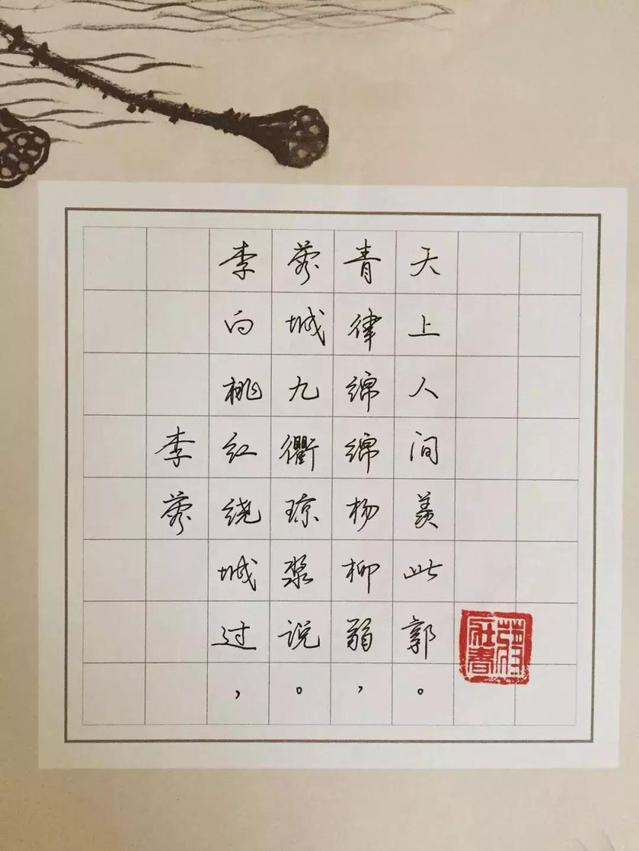 李蓉
李白桃红绕城过，
蓉城九衢琼浆说。
青律绵绵杨柳弱，
天上人间羡此郭。